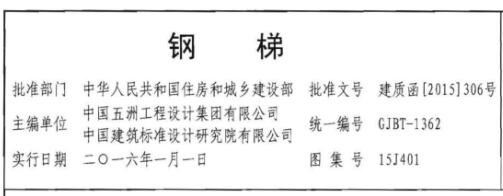 钢 梯
批准部门 中华人民共和国住房和城乡建设部 批准文号 建质函[2015]306号
主编单位 中国五洲工程设计集团有限公司 统一编号 GJBT-1362
中国建筑标准设计研究院有限公司
实行日期 二〇一六年一月一日 图集号 15J401